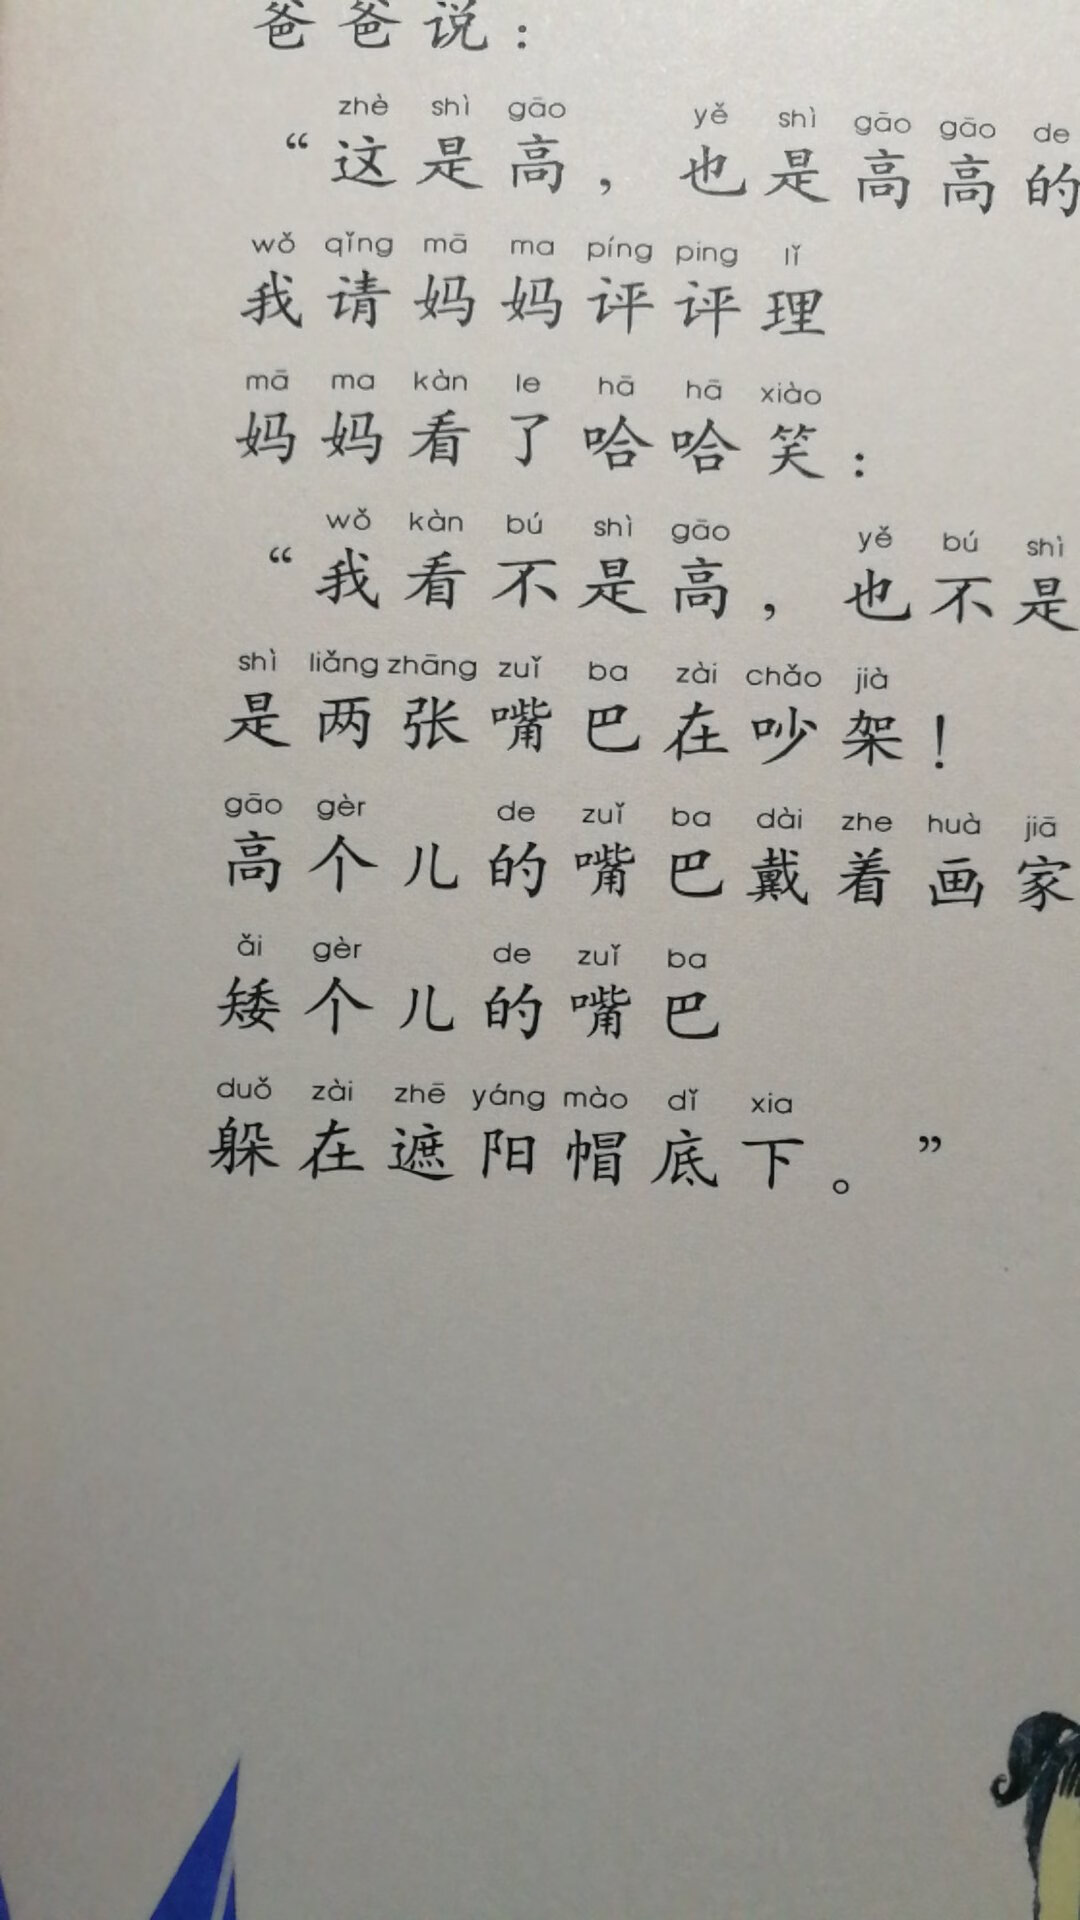 爸爸说：
zhè shì gāo yě shì gāo gāo de
“这是高，也是高高的
wǒ qǐng mā ma píng ping lǐ
我请妈妈评评理
mā ma kàn le hā hā xiào
妈妈看了哈哈笑：
wǒ kàn bú shì gāo yě bú shì
“我看不是高，也不是
shì liǎng zhāng zuǐ ba zài chǎo jià
是两张嘴巴在吵架！
gāo gèr de zuǐ ba dài zhe huà jiā
高个儿的嘴巴戴着画家
ǎi gèr de zuǐ ba
矮个儿的嘴巴
duǒ zài zhē yáng mào dǐ xia
躲在遮阳帽底下。”